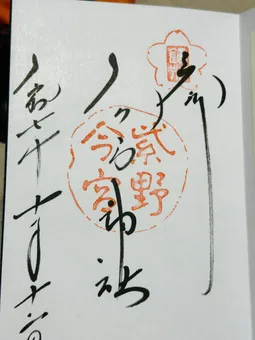 奉拝
今宮神社
紫野
今宮
令和七年十一月十六日